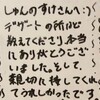 しゅんのすけさんへ:)
デザートの所はど
教えてくださり本当
にありがとうござ
いました。そして、
親切に接してくれ
てうれしかったです